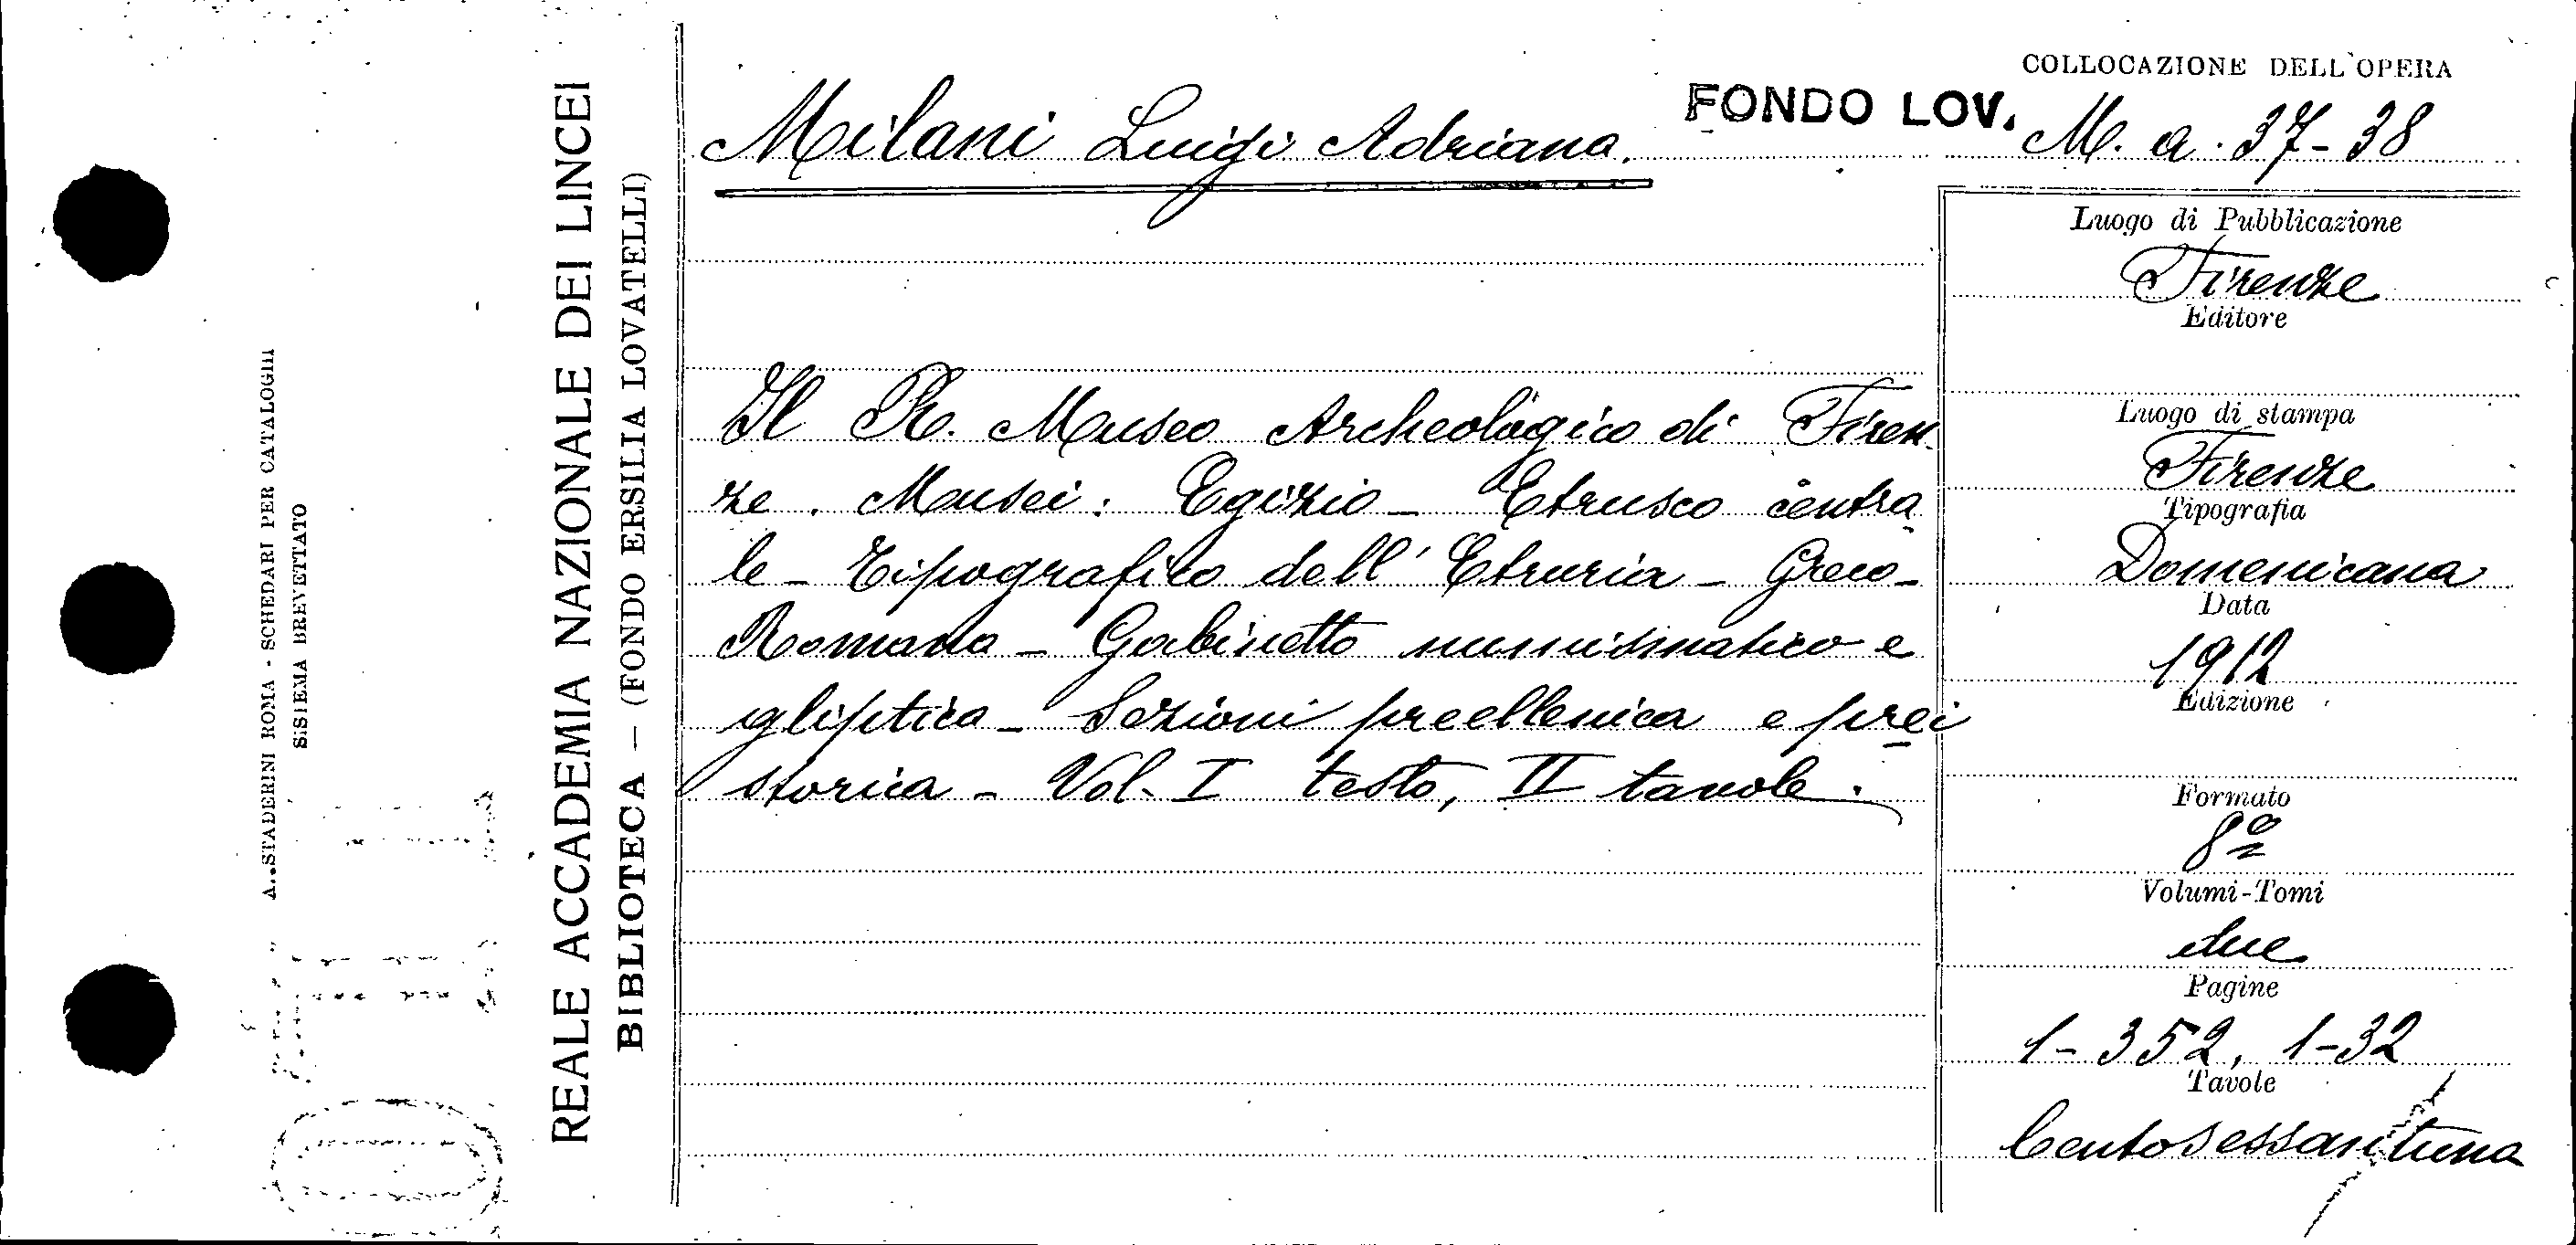 A. STADERINI ROMA - SCHEDARI PER CATALOGHI
SISTEMA BREVETTATO
REALE ACCADEMIA NAZIONALE DEI LINCEI
BIBLIOTECA — (FONDO ERSILIA LOVATELLI)
Milani Luigi Adriano.
FONDO LOV.
COLLOCAZIONE DELL'OPERA
M. a. 37-38
Il R. Museo Archeologico di Firen
ze. Musei: Egizio - Etrusco centra
le - Tipografico dell'Etruria - Greco-
Romano - Gabinetto numismatico e
gliptica - Sezioni preellenica e prei
storica - Vol. I testo, II tavole.
Luogo di Pubblicazione
Firenze
Editore
Luogo di stampa
Firenze
Tipografia
Domenicana
Data
1912
Edizione
Formato
8º
Volumi-Tomi
due
Pagine
1-352, 1-32
Tavole
Centosessantuna